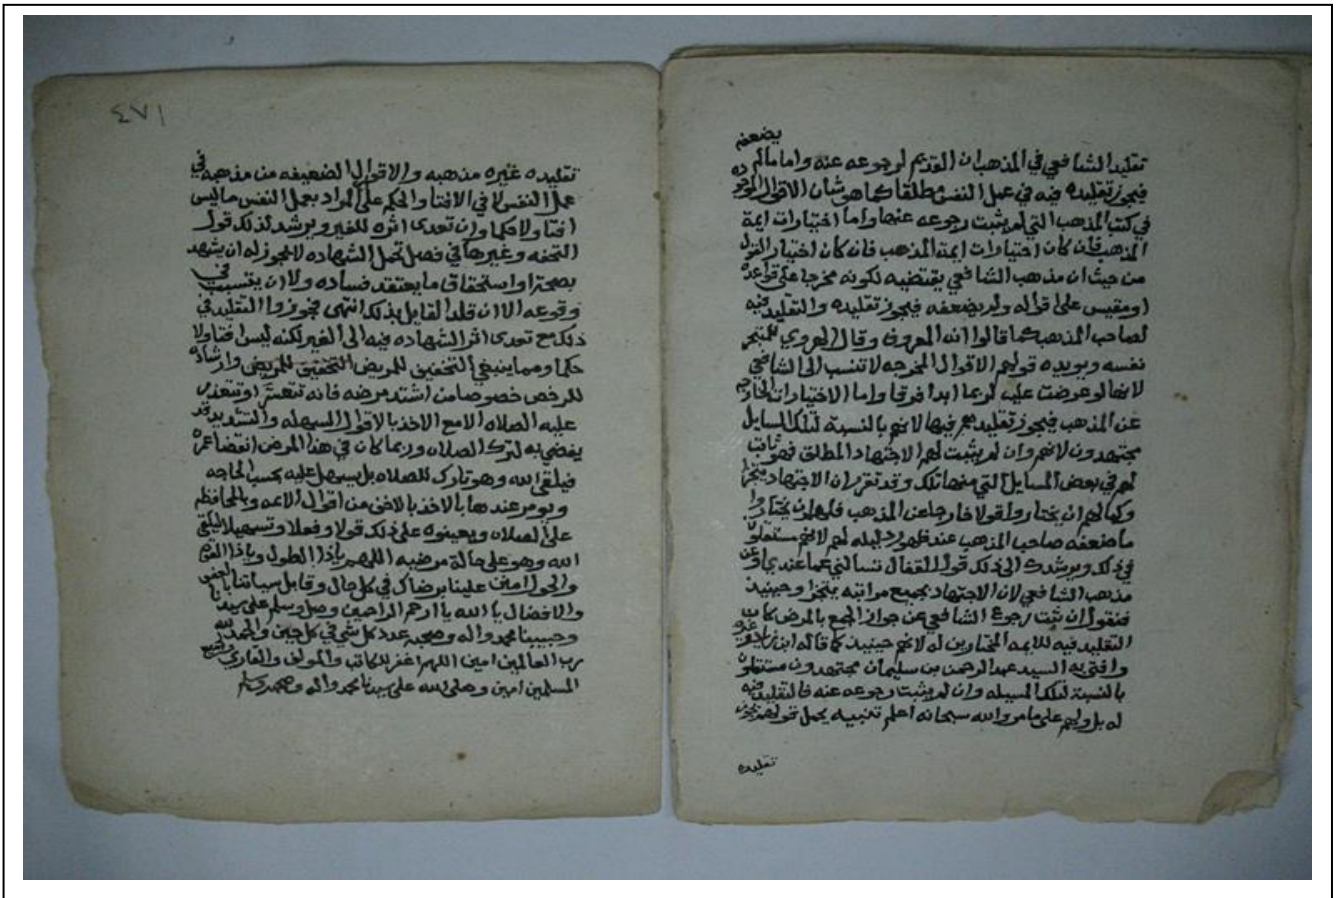 يضعفه
تقليد الشافعي في المذهب ان القديم لرجوعه عنه واما مالم
فيجوز تقليده فيه في عمل النفس مطلقا كما هو شان الاقوال الموجوده
في كتب المذهب التي لم يثبت رجوعه عنها واما اختيارات ايمة
المذهب فان كان اختيارات ايمة المذهب فان كان اختيار القول
من حيث ان مذهب الشافعي يقتضيه لكونه مخرجا على قواعده
او مقيس على اقواله ولم يضعفه فيجوز تقليده والتقليد فيه
لصاحب المذهب كما قالوا انه المعروف وقال الهروي للمتبحر
نفسه ويويده قولهم الاقوال المخرجه لا تنسب الى الشافعي
لانها لو عرضت عليه لربما ابدا فرقا واما الاختيارات الخارجه
عن المذهب فيجوز تقليدهم فيها لانهم بالنسبة لتلك المسايل
مجتهدون لانهم وان لم يثبت لهم الاجتهاد المطلق فهو ثابت
لهم في بعض المسايل التي منها تلك وقد تقرر ان الاجتهاد يتجزا
وكما لهم ان يختاروا قولا خارجا عن المذهب فلهم ان يختاروا
ما ضعفه صاحب المذهب عند ظهور دليله لهم لانهم مستقلون
في ذلك ويرشدك الى ذلك قول القفال تسالني عما عندي او عن
مذهب الشافعي لان الاجتهاد بجميع مراتبه يتجزا وحينيذ
فنقول ان ثبت رجوع الشافعي عن جواز الجمع بالمرض كان
التقليد فيه للايمه المختارين له لانهم حينيذ كما قاله ابن زياد وغيره
وافتى به السيد عبد الرحمن بن سليمان مجتهدون مستقلون
بالنسبة لتلك المسيله وان لم يثبت رجوعه عنه فالتقليد فيه
له بل ولهم على ما مر والله سبحانه اعلم تنبيه يحمل قولهم يجوز
تقليده
٤٧١
تقليده غيره مذهبه والاقوال الضعيفه من مذهبه في
عمل النفس لا في الافتا والحكم على المراد بعمل النفس ما ليس
افتا ولا حكما وان تعدى اثره للغير ويرشد لذلك قول
التحفه وغيرها في فصل تحمل الشهاده لا يجوز له ان يشهد
بصحة او استحقاق ما يعتقد فساده ولا ان يتسبب في
وقوعه الا ان قلد القايل بذلك انتهى فجوزوا التقليد في
ذلك مع تعدى اثر الشهاده فيه الى الغير لكنه ليس افتا ولا
حكما ومما ينبغي التخفيف للمريض وارشاده
للرخص خصوصا من اشتد مرضه فانه تتعسر او تتعذر
عليه الصلاه الا مع الاخذ بالاقوال السهله والتشديد قد
يفضي به لترك الصلاه وربما كان في هذا المرض انقضا عمره
فيلقى الله وهو تارك للصلاه بل يسهل عليه بحسب الحاجه
ويومر عندها بالاخذ بالاخف من اقوال الايمه وبالمحافظه
على الصلاه ويعينوه على ذلك قولا وفعلا وتسهيلا ليلقى
الله وهو على حالة مرضيه اللهم ياذا الطول وياذا القوه
والحول امنن علينا برضاك في كل حال وقابل سياتنا بالعفو
والافضال يا الله يا ارحم الراحمين وصل وسلم على سيدنا
وحبيبنا محمد واله وصحبه عدد كل شي في كل حين والحمد لله
رب العالمين امين اللهم اغفر للكاتب والمولف والقاري وجميع
المسلمين امين وصلى الله على سيدنا محمد واله وصحبه وسلم